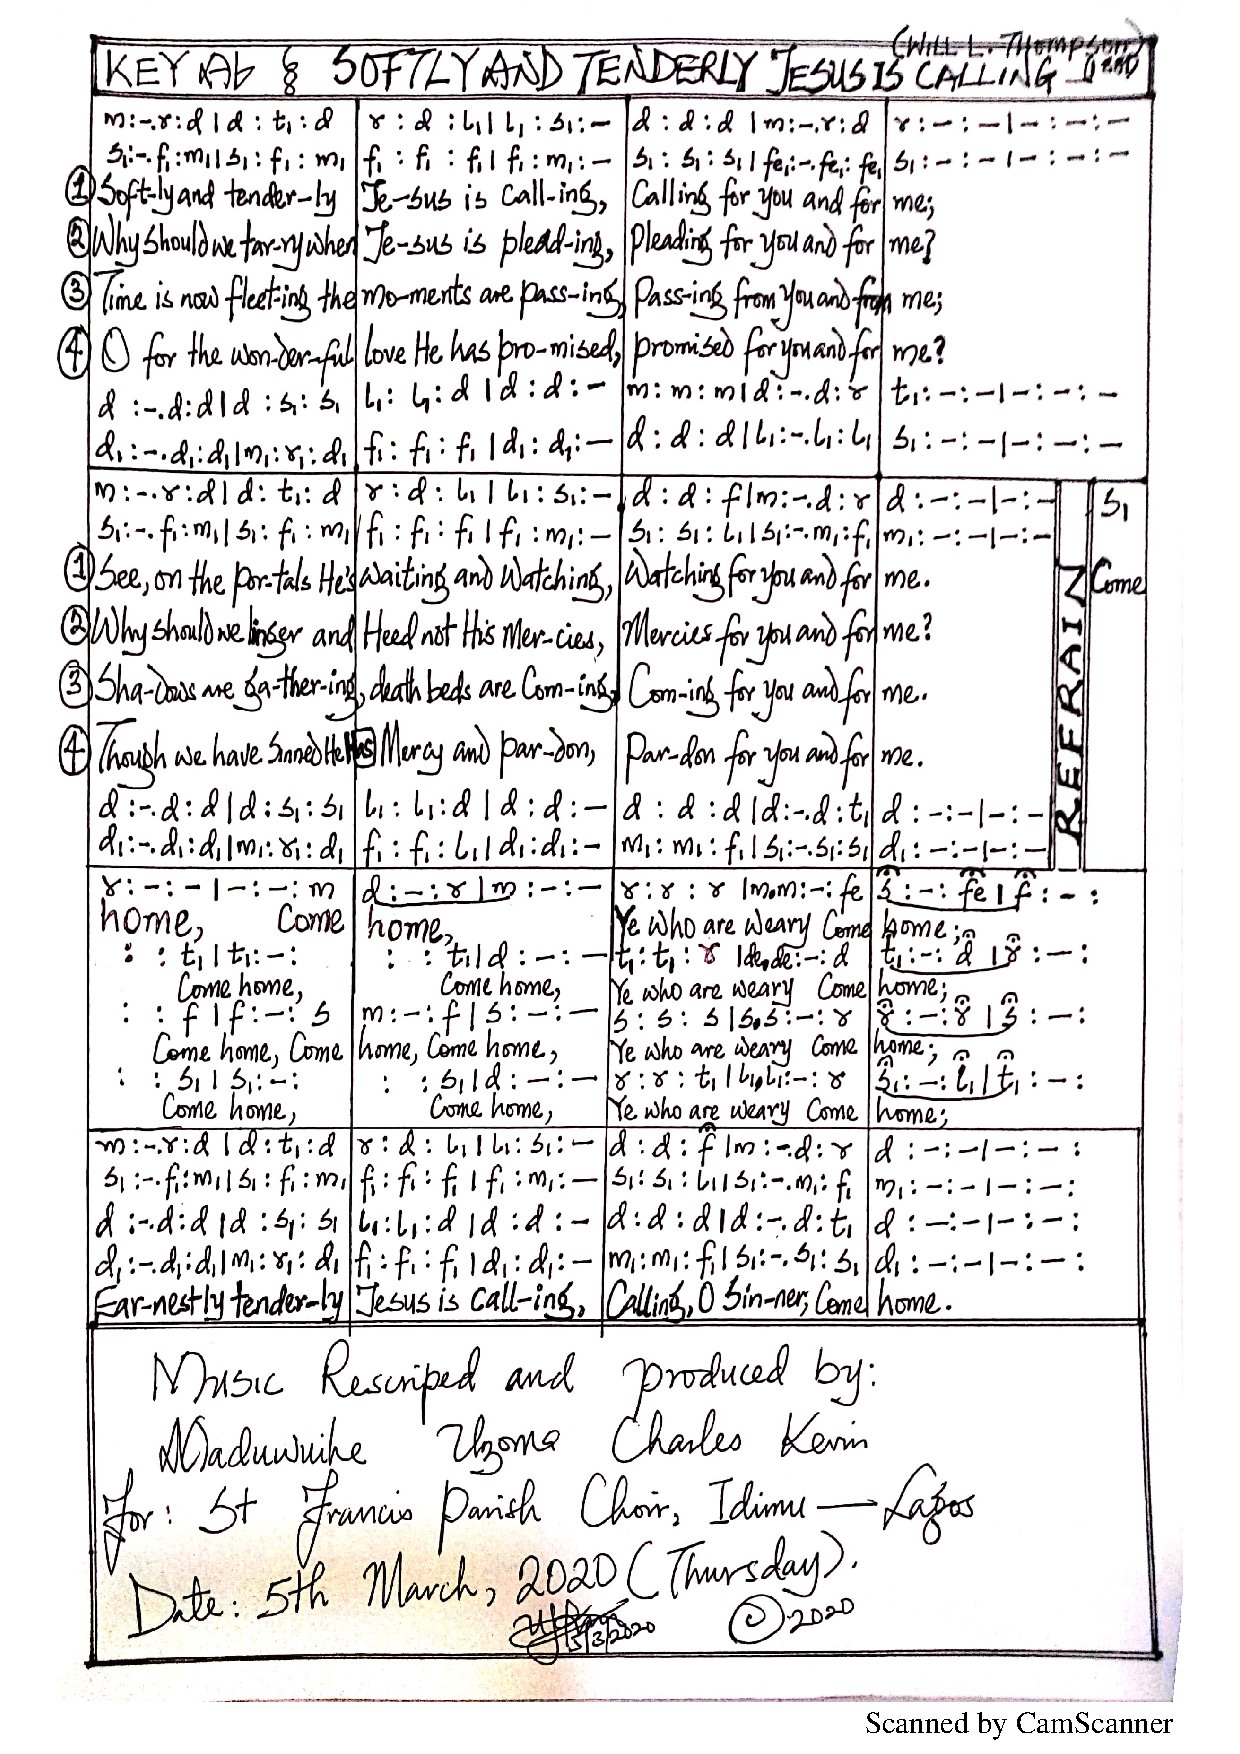 (Will L. Thompson)
KEY Ab 6/8 SOFTLY AND TENDERLY JESUS IS CALLING
m:-.r:d | d : t₁ : d | r : d : l₁ | l₁ : s₁ : - | d : d : d | m:-.r:d | r : - : - | - : - : -
s₁:-.f₁:m₁ | s₁ : f₁ : m₁ | f₁ : f₁ : f₁ | f₁ : m₁ : - | s₁ : s₁ : s₁ | fe₁:-.fe₁:fe₁ | s₁ : - : - | - : - : -
① Soft-ly and tender-ly Je-sus is Call-ing, Calling for you and for me;
② Why should we tar-ry when Je-sus is plead-ing, Pleading for you and for me?
③ Time is now fleet-ing the mo-ments are pass-ing, Pass-ing from you and from me;
④ O for the won-der-ful love He has pro-mised, promised for you and for me?
d :-.d:d | d : s₁ : s₁ | l₁ : l₁ : d | d : d : - | m : m : m | d:-.d:r | t₁ : - : - | - : - : -
d₁:-.d₁:d₁ | m₁ : r₁ : d₁ | f₁ : f₁ : f₁ | d₁ : d₁ : - | d : d : d | l₁:-.l₁:l₁ | s₁ : - : - | - : - : -
m:-.r:d | d : t₁ : d | r : d : l₁ | l₁ : s₁ : - | d : d : f | m:-.d:r | d : - : - | - : - s₁
s₁:-.f₁:m₁ | s₁ : f₁ : m₁ | f₁ : f₁ : f₁ | f₁ : m₁ : - | s₁ : s₁ : l₁ | s₁:-.m₁:f₁ | m₁ : - : - | - : -
① See, on the por-tals He's Waiting and Watching, Watching for you and for me. Come
② Why should we linger and Heed not His Mer-cies, Mercies for you and for me?
③ Sha-dows are ga-ther-ing, death beds are Com-ing, Com-ing for you and for me.
④ Though we have Sinned He Has Mercy and par-don, Par-don for you and for me.
REFRAIN
d:-.d:d | d : s₁ : s₁ | l₁ : l₁ : d | d : d : - | d : d : d | d:-.d:t₁ | d : - : - | - : -
d₁:-.d₁:d₁ | m₁ : r₁ : d₁ | f₁ : f₁ : l₁ | d₁ : d₁ : - | m₁ : m₁ : f₁ | s₁:-.s₁:s₁ | d₁ : - : - | - : -
r : - : - | - : - : m | d : - : r | m : - : - | r : r : r | m,m : - : fe | s : - : fe | f : - :
home, Come home, Ye who are weary Come home;
: : t₁ | t₁ : - : | : : t₁ | d : - : - | t₁ : t₁ : r | de,de : - : d | t₁ : - : d | r : - :
Come home, Come home, Ye who are weary Come home;
: : f | f : - : s | m : - : f | s : - : - | s : s : s | s,s : - : r | r : - : r | s : - :
Come home, Come home, Come home, Ye who are weary Come home;
: : s₁ | s₁ : - : | : : s₁ | d : - : - | r : r : t₁ | l₁,l₁ : - : r | s₁ : - : l₁ | t₁ : - :
Come home, Come home, Ye who are weary Come home;
m:-.r:d | d : t₁ : d | r : d : l₁ | l₁ : s₁ : - | d : d : f | m:-.d:r | d : - : - | - : - :
s₁:-.f₁:m₁ | s₁ : f₁ : m₁ | f₁ : f₁ : f₁ | f₁ : m₁ : - | s₁ : s₁ : l₁ | s₁:-.m₁:f₁ | m₁ : - : - | - : - :
d :-.d:d | d : s₁ : s₁ | l₁ : l₁ : d | d : d : - | d : d : d | d:-.d:t₁ | d : - : - | - : - :
d₁:-.d₁:d₁ | m₁ : r₁ : d₁ | f₁ : f₁ : f₁ | d₁ : d₁ : - | m₁ : m₁ : f₁ | s₁:-.s₁:s₁ | d₁ : - : - | - : - :
Ear-nestly tender-ly Jesus is call-ing, Calling, O Sin-ner, Come home.
Music Rescriped and produced by:
Maduwuihe Uzoma Charles Kevin
For: St Francis Parish Choir, Idimu — Lagos
Date: 5th March, 2020 (Thursday).
5/3/2020 © 2020
Scanned by CamScanner